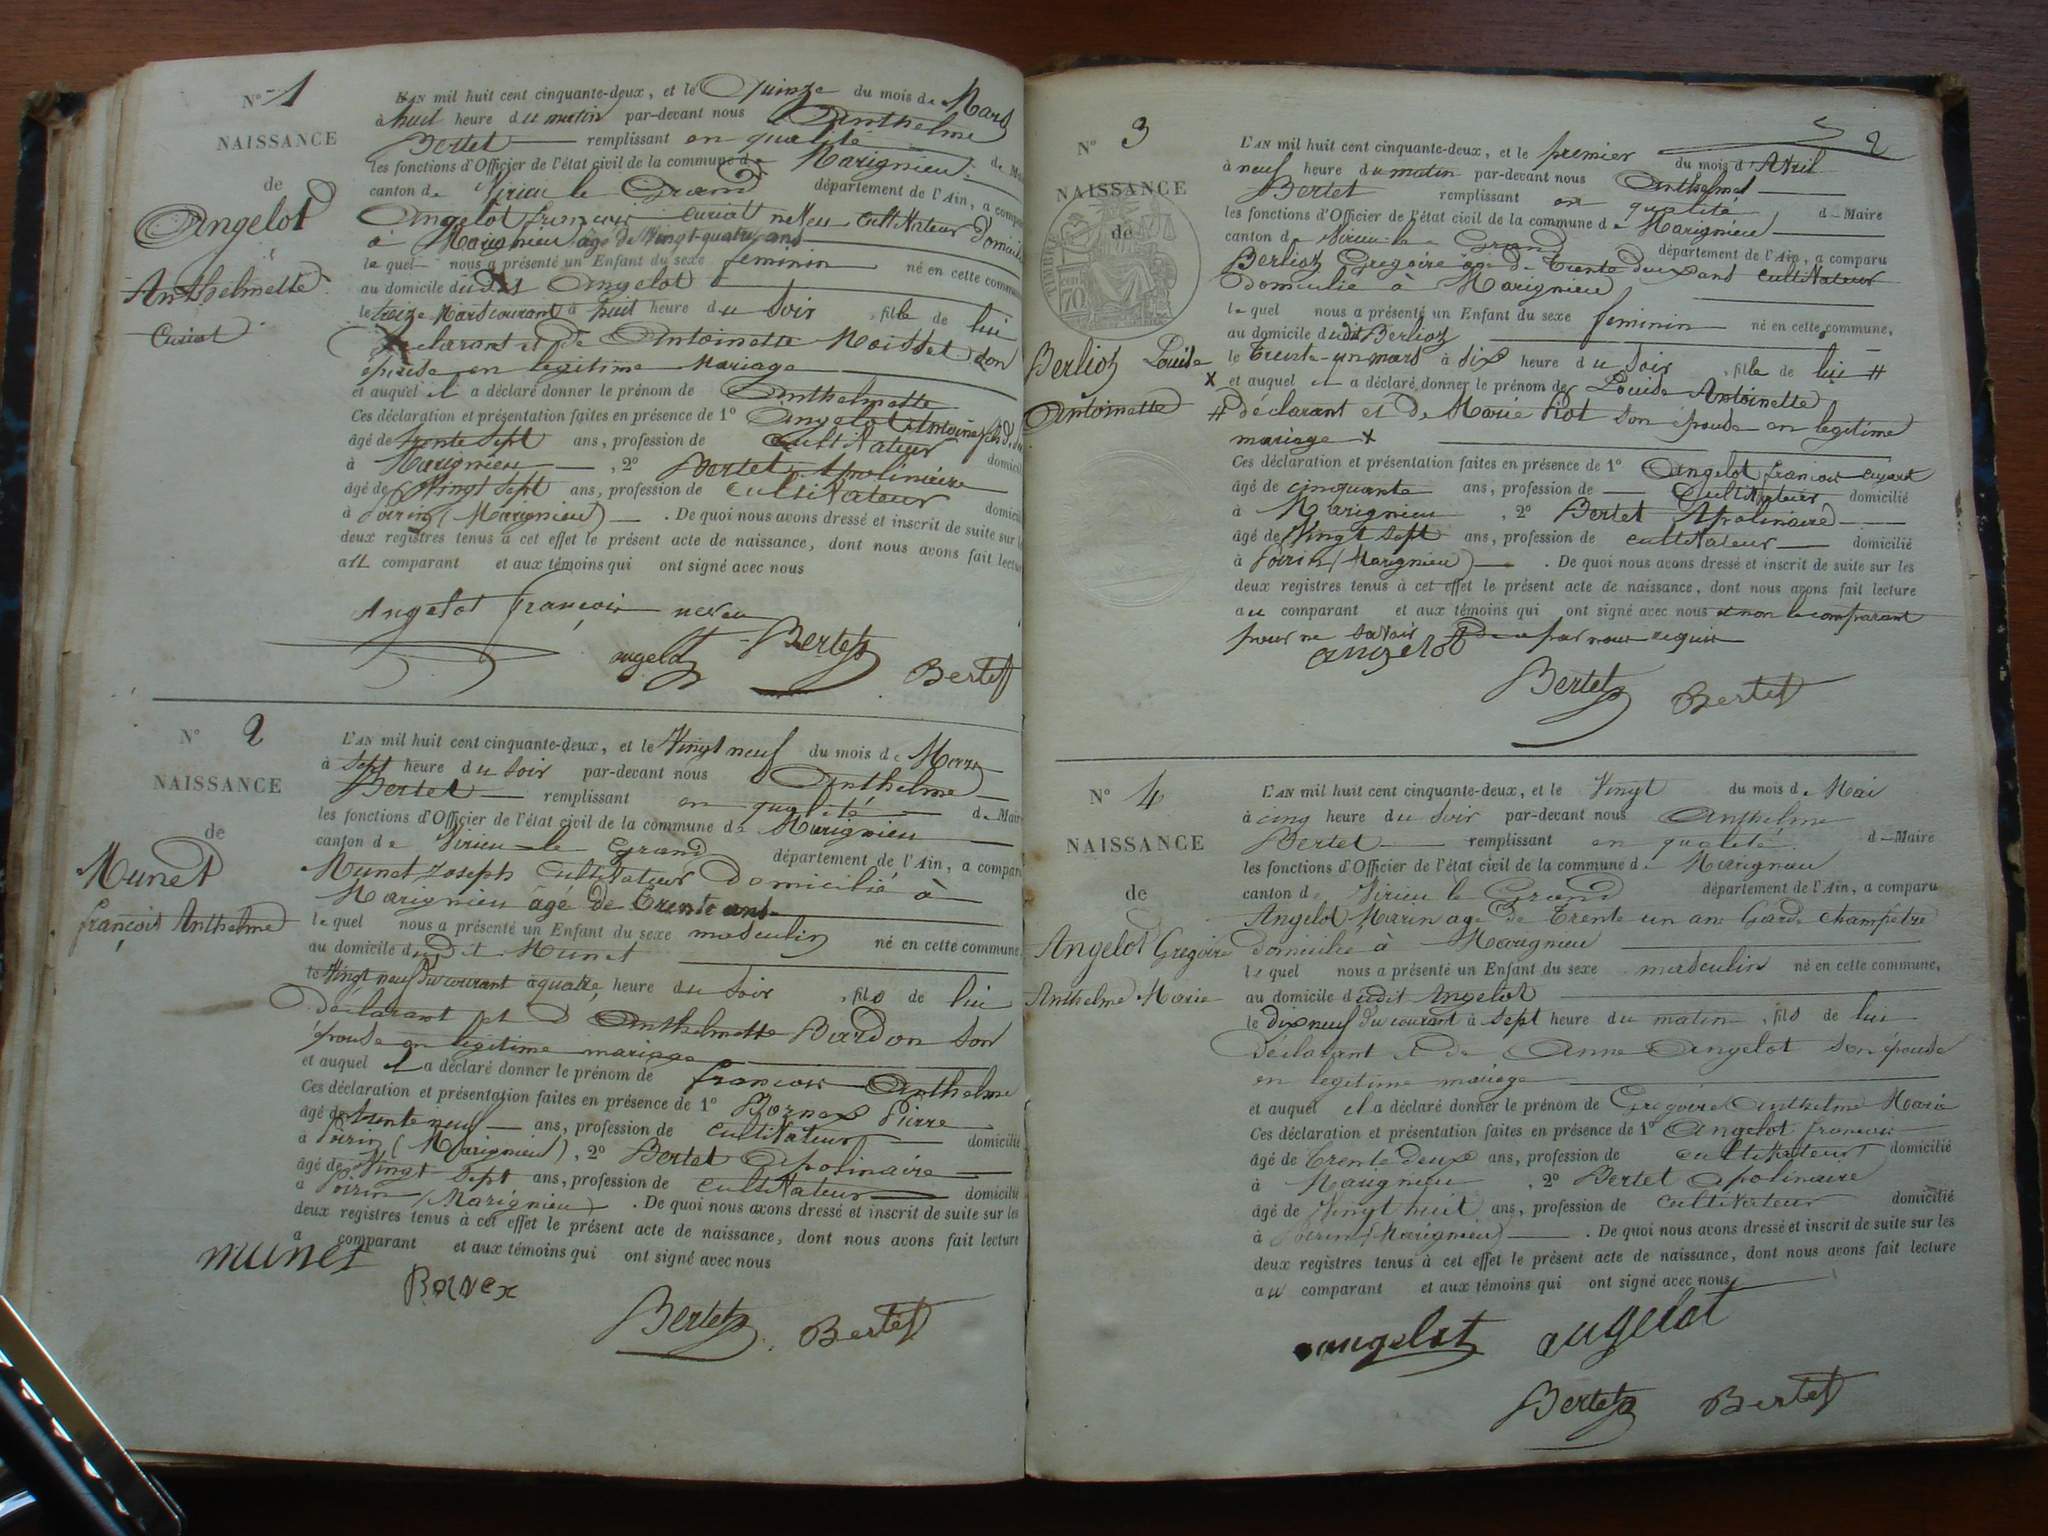 N° 1
NAISSANCE
de
Angelot
Anthelmette
L'AN mil huit cent cinquante-deux, et le Quinze du mois de Mars
à huit heure du matin par-devant nous Anthelme
Bertet remplissant en qualité de Maire
les fonctions d'Officier de l'état civil de la commune de Marignieu
canton de Virieu le Grand département de l'Ain, a comparu
Angelot françois neveu cultivateur domicilié
à Marignieu âgé de Vingt-quatre ans
lequel nous a présenté un Enfant du sexe feminin né en cette commune
au domicile dudit Angelot
le treize Mars courant à huit heure du soir, fille de lui
déclarant et de Antoinette Moisset son
épouse en legitime mariage
et auquel il a déclaré donner le prénom de Anthelmette
Ces déclaration et présentation faites en présence de 1° Angelot Antoine
âgé de trente sept ans, profession de cultivateur domicilié
à Marignieu, 2° Bertet Apolinaire
âgé de Vingt sept ans, profession de cultivateur domicilié
à Poirin (Marignieu). De quoi nous avons dressé et inscrit de suite sur les
deux registres tenus à cet effet le présent acte de naissance, dont nous avons fait lecture
au comparant et aux témoins qui ont signé avec nous
Angelot françois neveu
angelot Bertet Bertet
N° 2
NAISSANCE
de
Munet
françois Anthelme
L'AN mil huit cent cinquante-deux, et le Vingt neuf du mois de Mars
à sept heure du soir par-devant nous Anthelme
Bertet remplissant en qualité de Maire
les fonctions d'Officier de l'état civil de la commune de Marignieu
canton de Virieu le Grand département de l'Ain, a comparu
Munet Joseph cultivateur Domicilié à
Marignieu âgé de trente ans
lequel nous a présenté un Enfant du sexe masculin né en cette commune
au domicile dudit Munet
le Vingt neuf du courant à quatre heure du soir, fils de lui
déclarant et d Anthelmette Bardon son
épouse en legitime mariage
et auquel il a déclaré donner le prénom de françois Anthelme
Ces déclaration et présentation faites en présence de 1° Pierre
âgé de trente neuf ans, profession de cultivateur domicilié
à Poirin (Marignieu), 2° Bertet Apolinaire
âgé de Vingt sept ans, profession de cultivateur domicilié
à Poirin (Marignieu). De quoi nous avons dressé et inscrit de suite sur les
deux registres tenus à cet effet le présent acte de naissance, dont nous avons fait lecture
a comparant et aux témoins qui ont signé avec nous
munet
Bertet Bertet
2
N° 3
NAISSANCE
de
TIMBRE
70
Berlioz Louise
Antoinette
L'AN mil huit cent cinquante-deux, et le premier du mois d'Avril
à neuf heure du matin par-devant nous Anthelme
Bertet remplissant en qualité de Maire
les fonctions d'Officier de l'état civil de la commune de Marignieu
canton de Virieu le Grand département de l'Ain, a comparu
Berlioz Gregoire âgé de trente deux ans cultivateur
domicilié à Marignieu
lequel nous a présenté un Enfant du sexe feminin né en cette commune,
au domicile dudit Berlioz
le trente-un mars à dix heure du soir, fille de lui #
x et auquel il a déclaré donner le prénom de Louise Antoinette
# déclarant et de Marie Piot son épouse en legitime
mariage x
Ces déclaration et présentation faites en présence de 1° Angelot françois
âgé de cinquante ans, profession de cultivateur domicilié
à Marignieu, 2° Bertet Apolinaire
âgé de Vingt sept ans, profession de cultivateur domicilié
à Poirin (Marignieu). De quoi nous avons dressé et inscrit de suite sur les
deux registres tenus à cet effet le présent acte de naissance, dont nous avons fait lecture
au comparant et aux témoins qui ont signé avec nous et non le comparant
pour ne savoir de ce par nous requis
angelot
Bertet Bertet
N° 4
NAISSANCE
de
Angelot Gregoire
Anthelme Marie
L'AN mil huit cent cinquante-deux, et le Vingt du mois de Mai
à cinq heure du soir par-devant nous Anthelme
Bertet remplissant en qualité de Maire
les fonctions d'Officier de l'état civil de la commune de Marignieu
canton de Virieu le Grand département de l'Ain, a comparu
Angelot Marin age de trente un ans Garde champêtre
domicilié à Marignieu
lequel nous a présenté un Enfant du sexe masculin né en cette commune,
au domicile dudit Angelot
le dix neuf du courant à sept heure du matin, fils de lui
déclarant et de Anne Angelot son épouse
en legitime mariage
et auquel il a déclaré donner le prénom de Gregoire Anthelme Marie
Ces déclaration et présentation faites en présence de 1° Angelot françois
âgé de trente deux ans, profession de cultivateur domicilié
à Marignieu, 2° Bertet Apolinaire
âgé de Vingt huit ans, profession de cultivateur domicilié
à Poirin (Marignieu). De quoi nous avons dressé et inscrit de suite sur les
deux registres tenus à cet effet le présent acte de naissance, dont nous avons fait lecture
au comparant et aux témoins qui ont signé avec nous
angelot angelot
Bertet Bertet